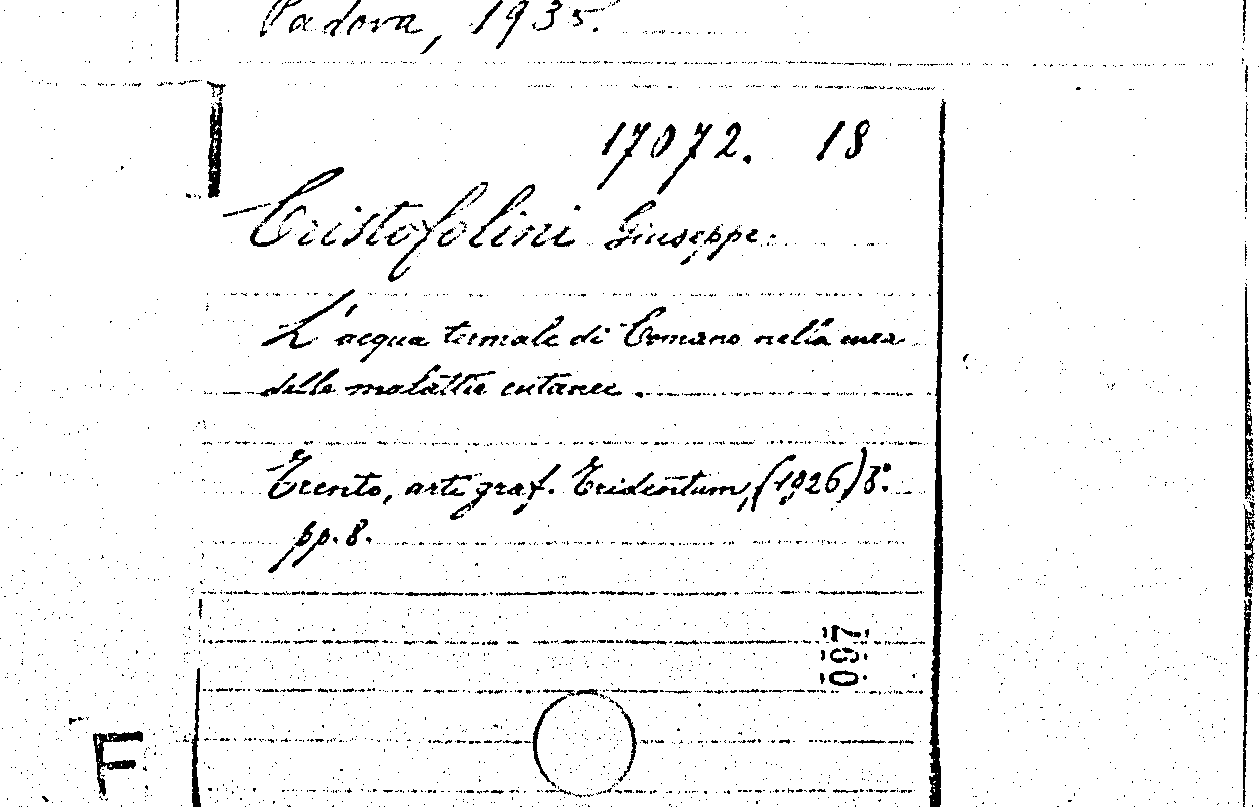 Padova, 1935.
17072. 18
Cristofolini Giuseppe.
L'acqua termale di Comano nella cura
delle malattie cutanee.
Trento, arti graf. Tridentum, (1926) 8°.
pp. 8.
097
F